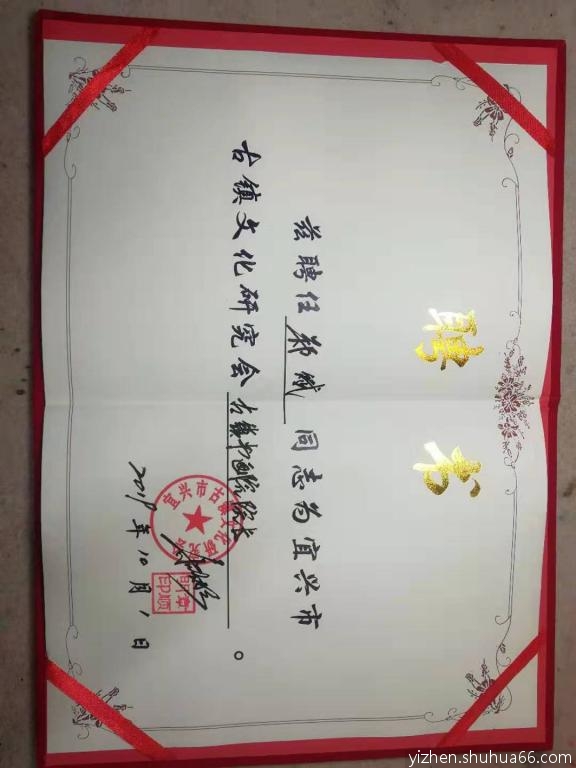 聘书
兹聘任郑斌同志为宜兴市
古镇文化研究会古镇书画院院长。
宜兴市古镇文化研究会
2019年10月1日
yizhen.shuhua66.com